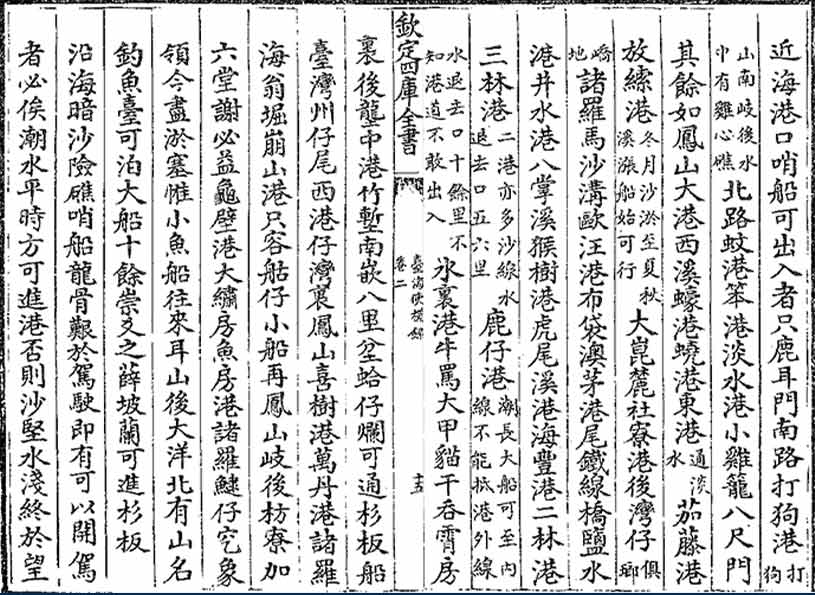 近海港口哨船可出入者只鹿耳門南路打狗港打狗
山南岐後水中有雞心礁北路蚊港笨港淡水港小雞籠八尺門
其餘如鳳山大港西溪蠔港蟯港東港通淡水茄藤港
放縤港冬月沙淤至夏秋溪漲船始可行大崑麓社寮港後灣仔俱瑯
嶠地諸羅馬沙溝歐汪港布袋澳茅港尾鐵線橋鹽水
港井水港八掌溪猴樹港虎尾溪港海豐港二林港
三林港二港亦多沙線水退去口五六里鹿仔港潮長大船可至內線不能抵港外線
水退去口十餘里不知港道不敢出入水裏港牛罵大甲貓干吞霄房
欽定四庫全書
臺海使槎錄
卷二
十五
裏後壠中港竹塹南嵌八里坌蛤仔爛可通杉板船
臺灣州仔尾西港仔灣裏鳳山喜樹港萬丹港諸羅
海翁堀崩山港只容𦨭仔小船再鳳山岐後枋寮加
六堂謝必益龜壁港大繡房魚房港諸羅鰎仔穵象
領今盡淤塞惟小魚船往來耳山後大洋北有山名
釣魚臺可泊大船十餘崇爻之薛坡蘭可進杉板
沿海暗沙險礁哨船龍骨艱於駕駛即有可以開駕
者必俟潮水平時方可進港否則沙堅水淺終於望